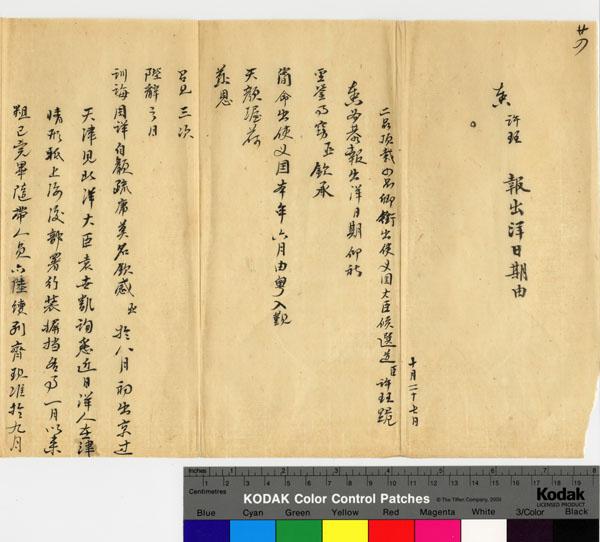 奏 許珏 報出洋日期由
十月二十七日
二品頂戴四品卿銜出使義國大臣候選道臣許珏跪
奏為恭報出洋日期仰祈
聖鑒事竊臣欽承
簡命出使義國本年六月由粵入覲
天顏渥荷
慈恩
召見三次
陛辭之日
訓誨周詳自顧疏庸莫名欽感臣於八月初出京過
天津見北洋大臣袁世凱詢悉近日洋人在津
情形抵上海後部署行裝摒擋各事一月以來
粗已完畢隨帶人員亦陸續到齊現准於九月
Inches 1 2 3 4 5 6 7 8
Centimetres 1 2 3 4 5 6 7 8 9 10 11 12 13 14 15 16 17 18 19
KODAK Color Control Patches © The Tiffen Company, 2000
Kodak
LICENSED PRODUCT
Blue Cyan Green Yellow Red Magenta White 3/Color Black